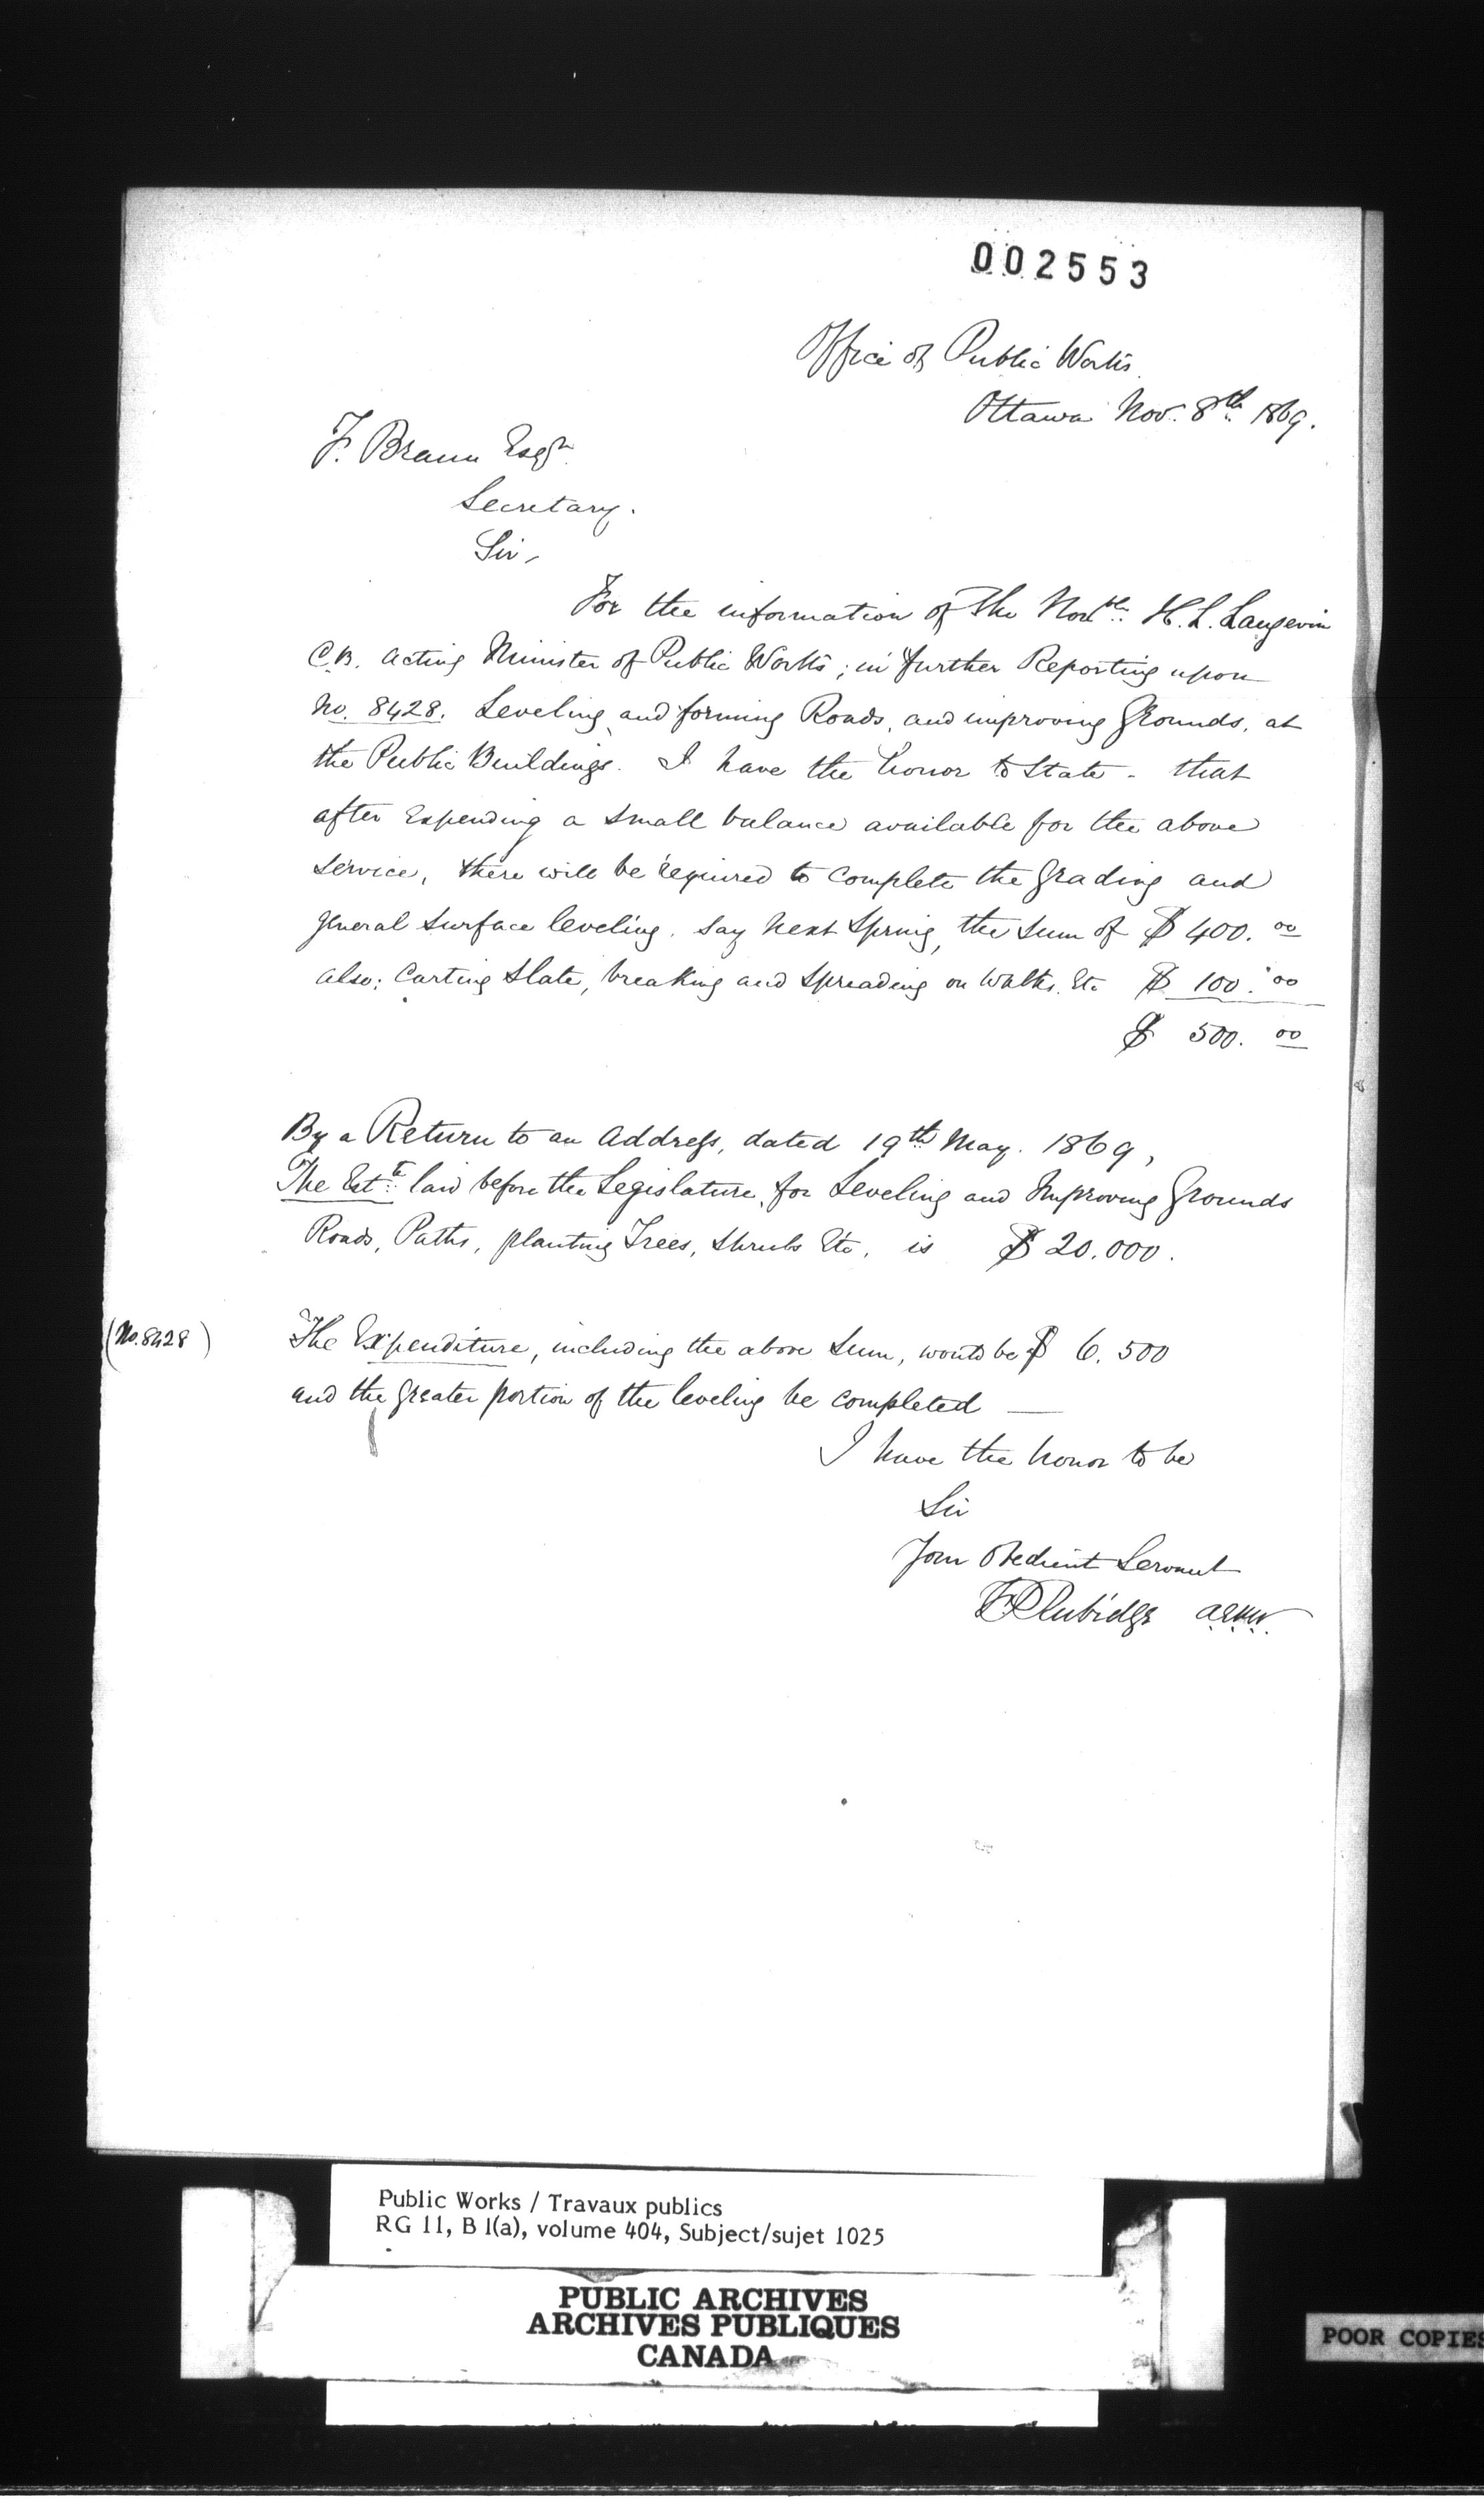 002553
Office of Public Works
Ottawa Nov. 8th 1869.
F. Braun Esqr
Secretary.
Sir,
For the information of The Honble. H. L. Langevin
C.B. Acting Minister of Public Works; in further Reporting upon
No. 8428. Leveling and forming Roads, and improving Grounds, at
the Public Buildings. I have the honor to State - that
after Expending a small balance available for the above
Service, there will be required to Complete the Grading and
general Surface leveling. Say Next Spring, the Sum of $ 400. 00
also: Carting Slate, breaking and Spreading on Walks. Etc $ 100. 00
$ 500. 00
By a Return to an Address, dated 19th May. 1869,
The Estte. laid before the Legislature, for Leveling and Improving Grounds
Roads, Paths, planting Trees, Shrubs Etc, is $ 20.000.
(No. 8428) The Expenditure, including the above Sum, would be $ 6.500
and the greater portion of the leveling be completed —
I have the honor to be
Sir
Your Obedient Servant
F P Rubidge
Public Works / Travaux publics
RG 11, B 1(a), volume 404, Subject/sujet 1025
PUBLIC ARCHIVES
ARCHIVES PUBLIQUES
CANADA
POOR COPIES